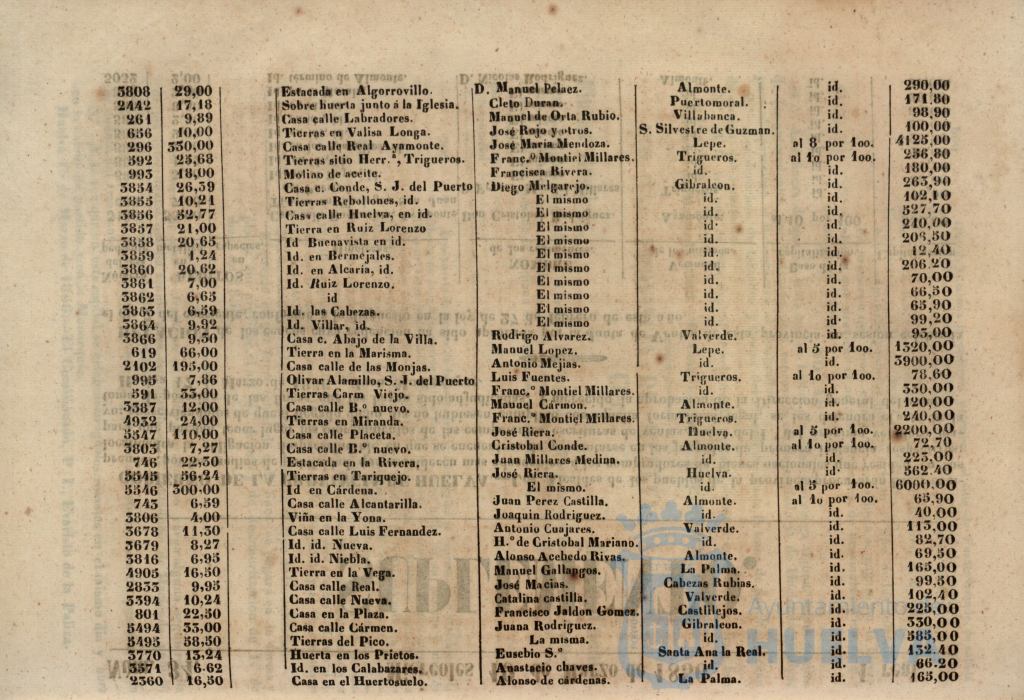 3808 29,00 Estacada en Algorrovillo. D. Manuel Pelaez. Almonte. id. 290,00
2442 17,18 Sobre huerta junto á la Iglesia. Cleto Duran. Puertomoral. id. 171,80
261 9,89 Casa calle Labradores. Manuel de Orta Rubio. Villabanca. id. 98,90
656 10,00 Tierras en Valisa Longa. José Rojo y otros. S. Silvestre de Guzman. id. 100,00
296 330,00 Casa calle Real Ayamonte. José Maria Mendoza. Lepe. al 8 por 100. 4125,00
592 25,68 Tierras sitio Herr.ª, Trigueros. Franc.º Montiel Millares. Trigueros. al 10 por 100. 256,80
993 18,00 Molino de aceite. Francisca Rivera. id. id. 180,00
3854 26,39 Casa c. Conde, S. J. del Puerto Diego Melgarejo. Gibraleon. id. 263,90
3855 10,21 Tierras Rebollones, id. El mismo id. id. 102,10
3856 52,77 Casa calle Huelva, en id. El mismo id. id. 527,70
3857 21,00 Tierra en Ruiz Lorenzo El mismo id. id. 210,00
3858 20,65 Id Buenavista en id. El mismo id. id. 206,50
3859 1,24 Id. en Bermejales. El mismo id. id. 12,40
3860 20,62 Id. en Alcaría, id. El mismo id. id. 206.20
3861 7,00 Id. Ruiz Lorenzo. El mismo id. id. 70,00
3862 6,65 id El mismo id. id. 66,50
3863 6,59 Id. las Cabezas. El mismo id. id. 65,90
3864 9,92 Id. Villar, id. El mismo id. id. 99,20
3866 9,30 Casa c. Abajo de la Villa. Rodrigo Alvarez. Valverde. id. 93,00
619 66,00 Tierra en la Marisma. Manuel Lopez. Lepe. al 5 por 100. 1320,00
2102 195,00 Casa calle de las Monjas. Antonio Mejias. id. id. 3900,00
995 7,86 Olivar Alamillo, S. J. del Puerto Luis Fuentes. Trigueros. al 10 por 100. 78,60
591 33,00 Tierras Carm Viejo. Franc.º Montiel Millares. id. id. 330,00
3387 12,00 Casa calle B.º nuevo. Manuel Cármon. Almonte. id. 120,00
4932 24,00 Tierras en Miranda. Franc.º Montiel Millares. Trigueros. id. 240,00
5547 110,00 Casa calle Placeta. José Riera. Huelva. al 5 por 100. 2200,00
3803 7,27 Casa calle B.º nuevo. Cristobal Conde. Almonte. al 10 por 100. 72,70
746 22,30 Estacada en la Rivera. Juan Millares Medina. id. id. 223,00
5545 56,24 Tierras en Tariquejo. José Riera. Huelva. id. 562.40
5546 300,00 Id en Cárdena. El mismo. id. al 5 por 100. 6000,00
743 6,59 Casa calle Alcantarilla. Juan Perez Castilla. Almonte. al 10 por 100. 65,90
3806 4,00 Viña en la Yona. Joaquin Rodriguez. id. id. 40,00
3678 11,30 Casa calle Luis Fernandez. Antonio Cuajares. Valverde. id. 113,00
3679 8,27 Id. id. Nueva. H.º de Cristobal Mariano. id. id. 82,70
3816 6,95 Id. id. Niebla. Alonso Acebedo Rivas. Almonte. id. 69,50
4905 16,50 Tierra en la Vega. Manuel Gallangos. La Palma. id. 165,00
2833 9,95 Casa calle Real. José Macias. Cabezas Rubias. id. 99,50
3394 10,24 Casa calle Nueva. Catalina castilla. Valverde. id. 102,40
801 22,50 Casa en la Plaza. Francisco Jaldon Gomez. Castilejos. id. 225,00
5494 33,00 Casa calle Cármen. Juana Rodriguez. Gibraleon. id. 330,00
5495 58,50 Tierras del Pico. La misma. id. id. 585,00
3770 13,24 Huerta en los Prietos. Eusebio S.º Santa Ana la Real. id. 132.40
3571 6.62 Id. en los Calabazares. Anastacio chaves. id. id. 66.20
2360 16,50 Casa en el Huertosuelo. Alonso de cárdenas. La Palma. id. 165,00
Ayuntamiento
HUELVA